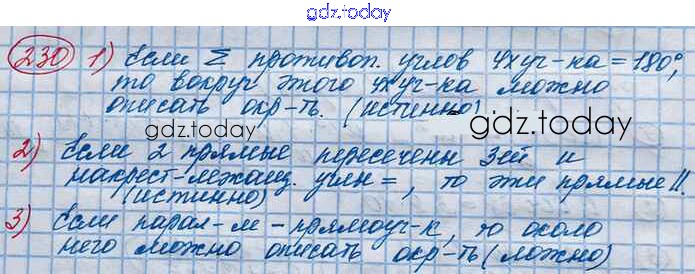 gdz.today
230 1) Если Σ противоп. углов 4хуг-ка = 180°,
то вокруг этого 4хуг-ка можно
описать окр-ть. (истинно)
gdz.today gdz.today
2) Если 2 прямые пересечены 3ей и
накрест-лежащ. углы =, то эти прямые ||.
(истинно)
3) Если парал-м - прямоуг-к, то около
него можно описать окр-ть (ложно)